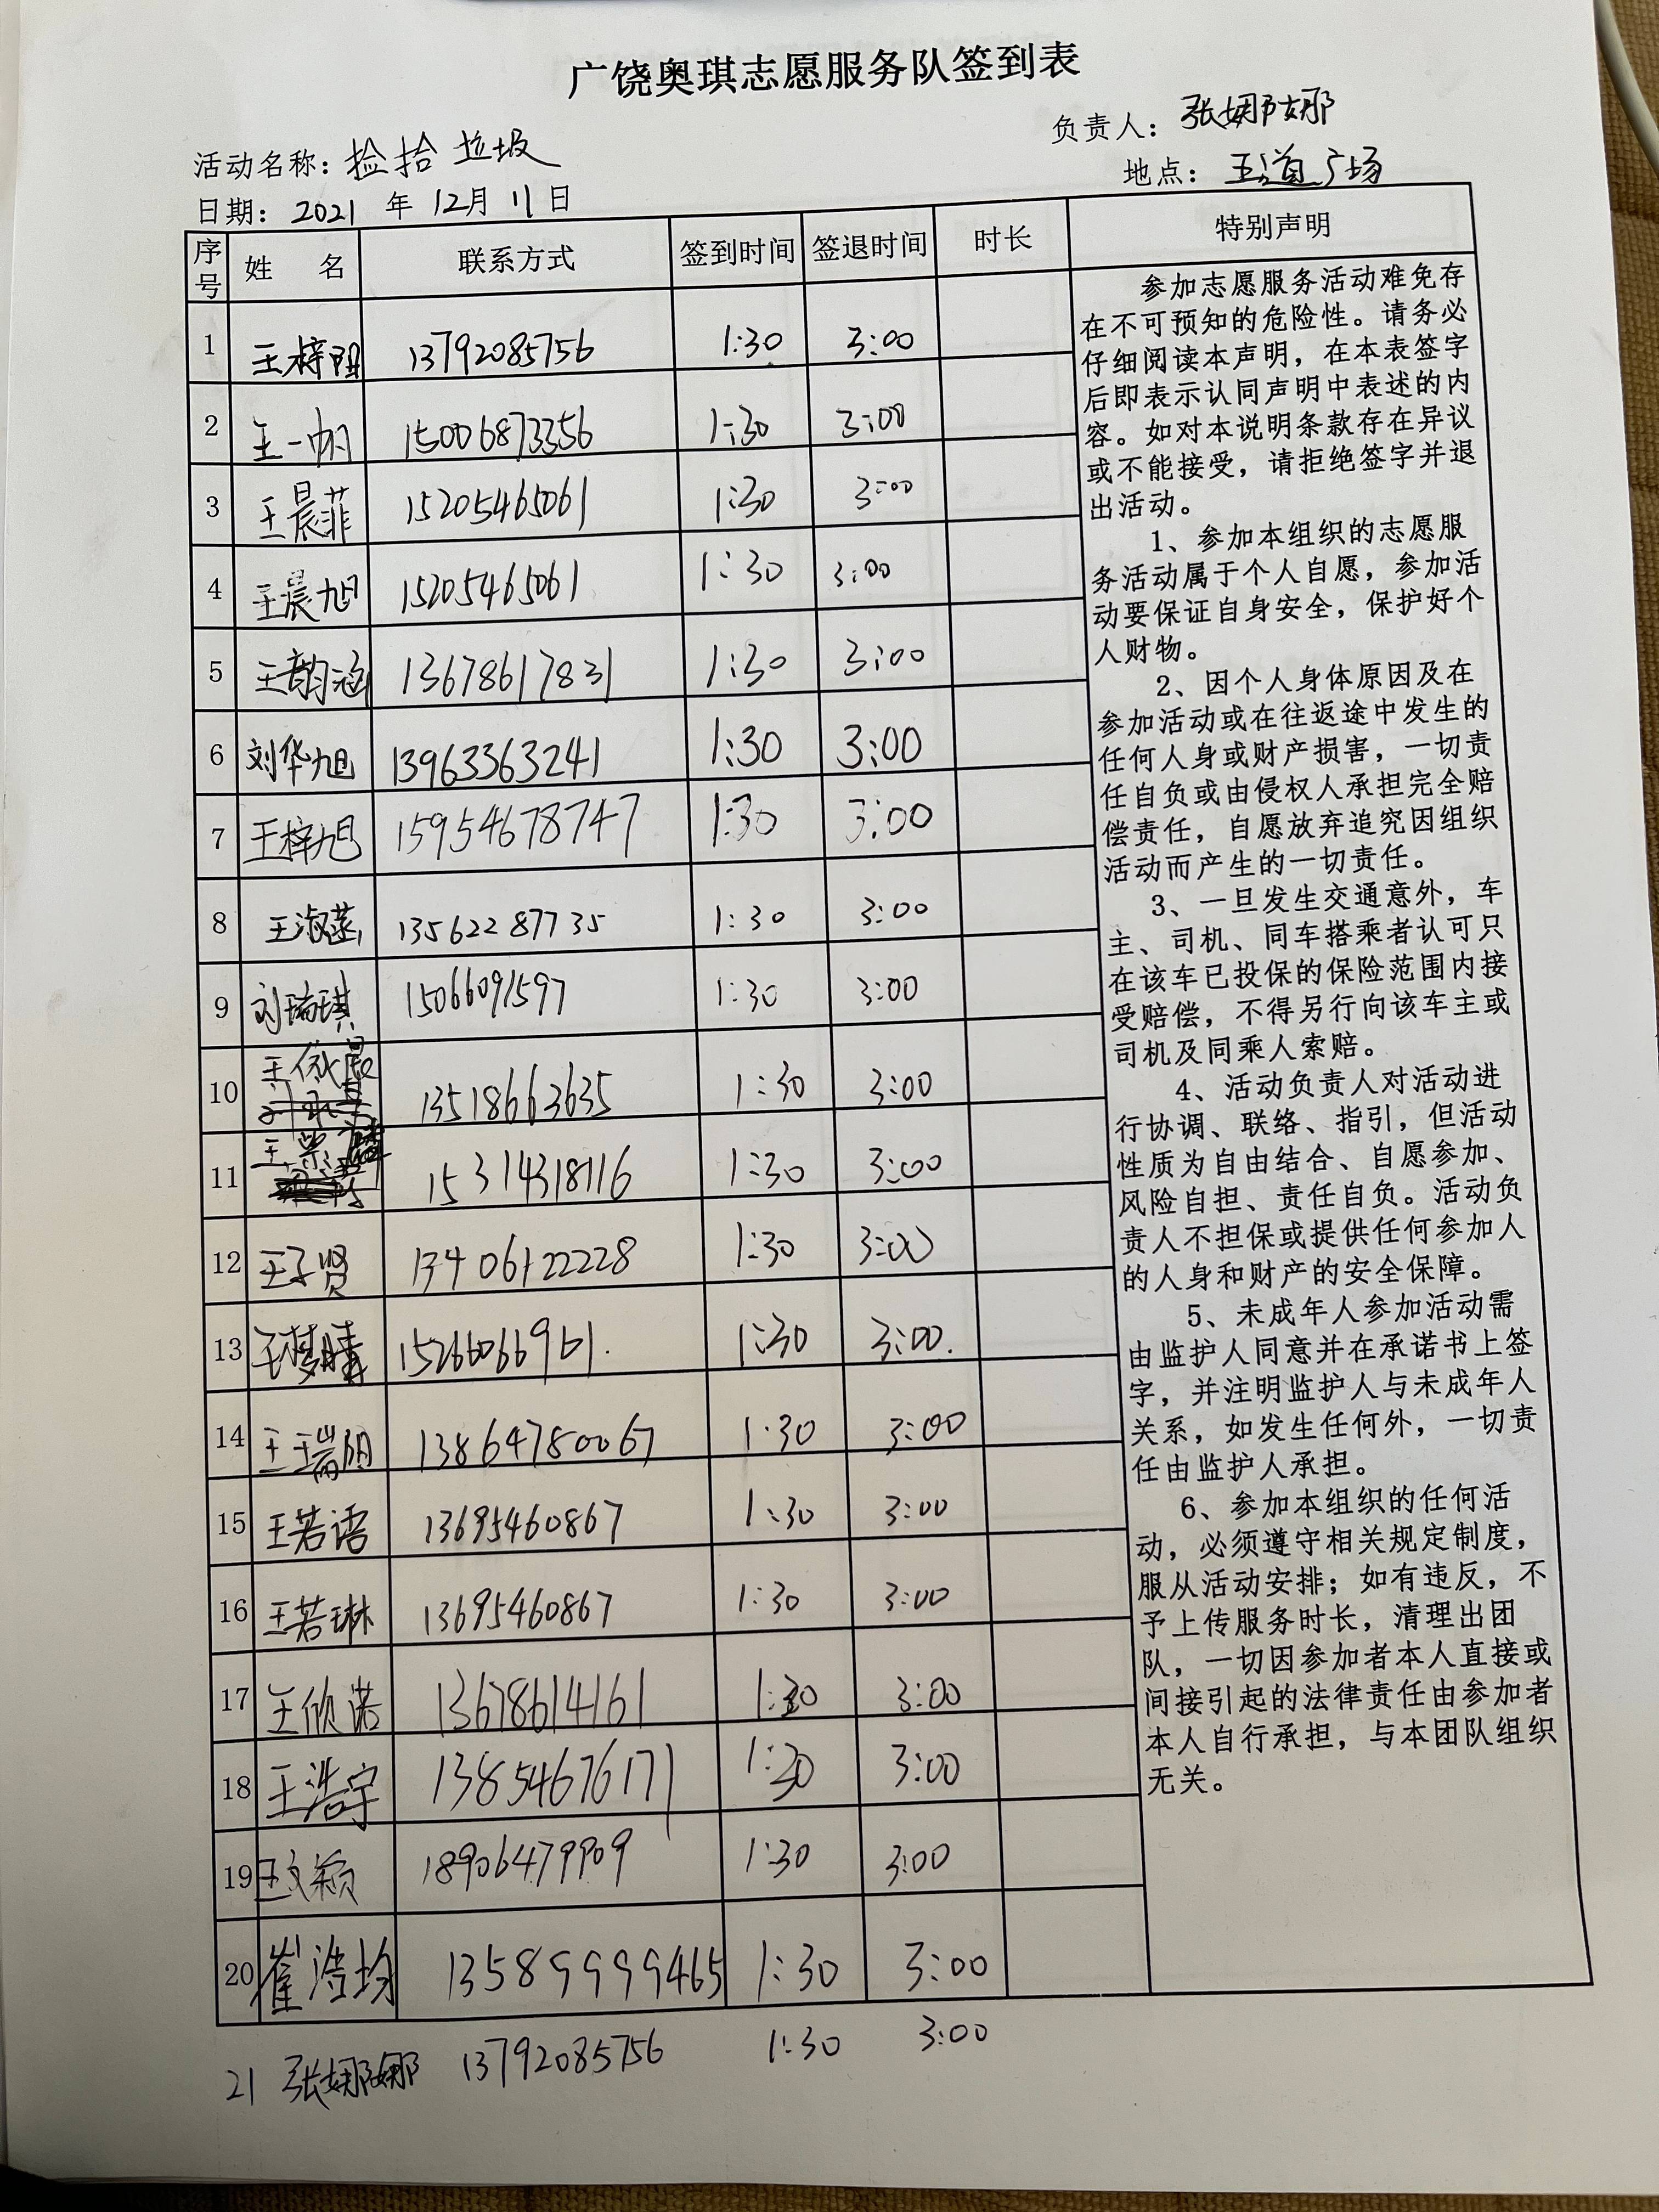 广饶奥琪志愿服务队签到表
负责人：张娜娜
活动名称：捡拾垃圾
地点：王道广场
日期：2021 年 12月 11日
序号 姓 名 联系方式 签到时间 签退时间 时长 特别声明
1 王梓阳 13792085756 1:30 3:00
2 王一帆 15006873356 1:30 3:00
3 王晨菲 15205465061 1:30 3:00
4 王晨旭 15205465061 1:30 3:00
5 王韵涵 13678617831 1:30 3:00
6 刘华旭 13963363241 1:30 3:00
7 王梓旭 15954678747 1:30 3:00
8 王淑蕊 13562287735 1:30 3:00
9 刘瑞琪 15066091597 1:30 3:00
10 王依晨 13518663635 1:30 3:00
11 王 15314318116 1:30 3:00
12 王子贤 13406122228 1:30 3:00
13 王梦晴 1:30 3:00.
14 王瑞阳 13864780067 1:30 3:00
15 王若语 13695460867 1:30 3:00
16 王若琳 13695460867 1:30 3:00
17 王欣诺 13678614161 1:30 3:00
18 王浩宇 13854676171 1:30 3:00
19 王文颖 18906479909 1:30 3:00
20 崔浩均 135899999465 1:30 3:00
21 张娜娜 13792085756 1:30 3:00
参加志愿服务活动难免存
在不可预知的危险性。请务必
仔细阅读本声明，在本表签字
后即表示认同声明中表述的内
容。如对本说明条款存在异议
或不能接受，请拒绝签字并退
出活动。
1、参加本组织的志愿服
务活动属于个人自愿，参加活
动要保证自身安全，保护好个
人财物。
2、因个人身体原因及在
参加活动或在往返途中发生的
任何人身或财产损害，一切责
任自负或由侵权人承担完全赔
偿责任，自愿放弃追究因组织
活动而产生的一切责任。
3、一旦发生交通意外，车
主、司机、同车搭乘者认可只
在该车已投保的保险范围内接
受赔偿，不得另行向该车主或
司机及同乘人索赔。
4、活动负责人对活动进
行协调、联络、指引，但活动
性质为自由结合、自愿参加、
风险自担、责任自负。活动负
责人不担保或提供任何参加人
的人身和财产的安全保障。
5、未成年人参加活动需
由监护人同意并在承诺书上签
字，并注明监护人与未成年人
关系，如发生任何外，一切责
任由监护人承担。
6、参加本组织的任何活
动，必须遵守相关规定制度，
服从活动安排；如有违反，不
予上传服务时长，清理出团
队，一切因参加者本人直接或
间接引起的法律责任由参加者
本人自行承担，与本团队组织
无关。